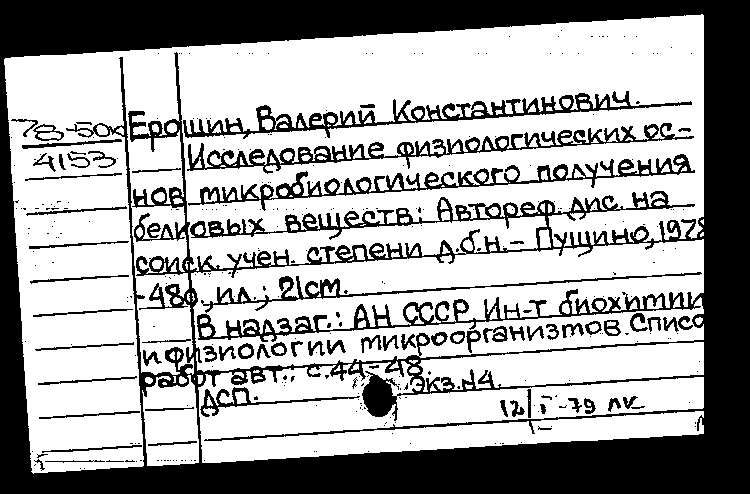 78-50к Ерошин, Валерий Константинович.
4153 Исследование физиологических ос-
нов микробиологического получения
белковых веществ: Автореф. дис. на
соиск. учен. степени д.б.н. - Пущино, 1978
-48с., ил.; 21см.
В надзаг.: АН СССР, Ин-т биохимии
и физиологии микроорганизмов. Списо
работ авт.: с.44-48.
ДСП. Экз.№4.
12/I-79 ЛК